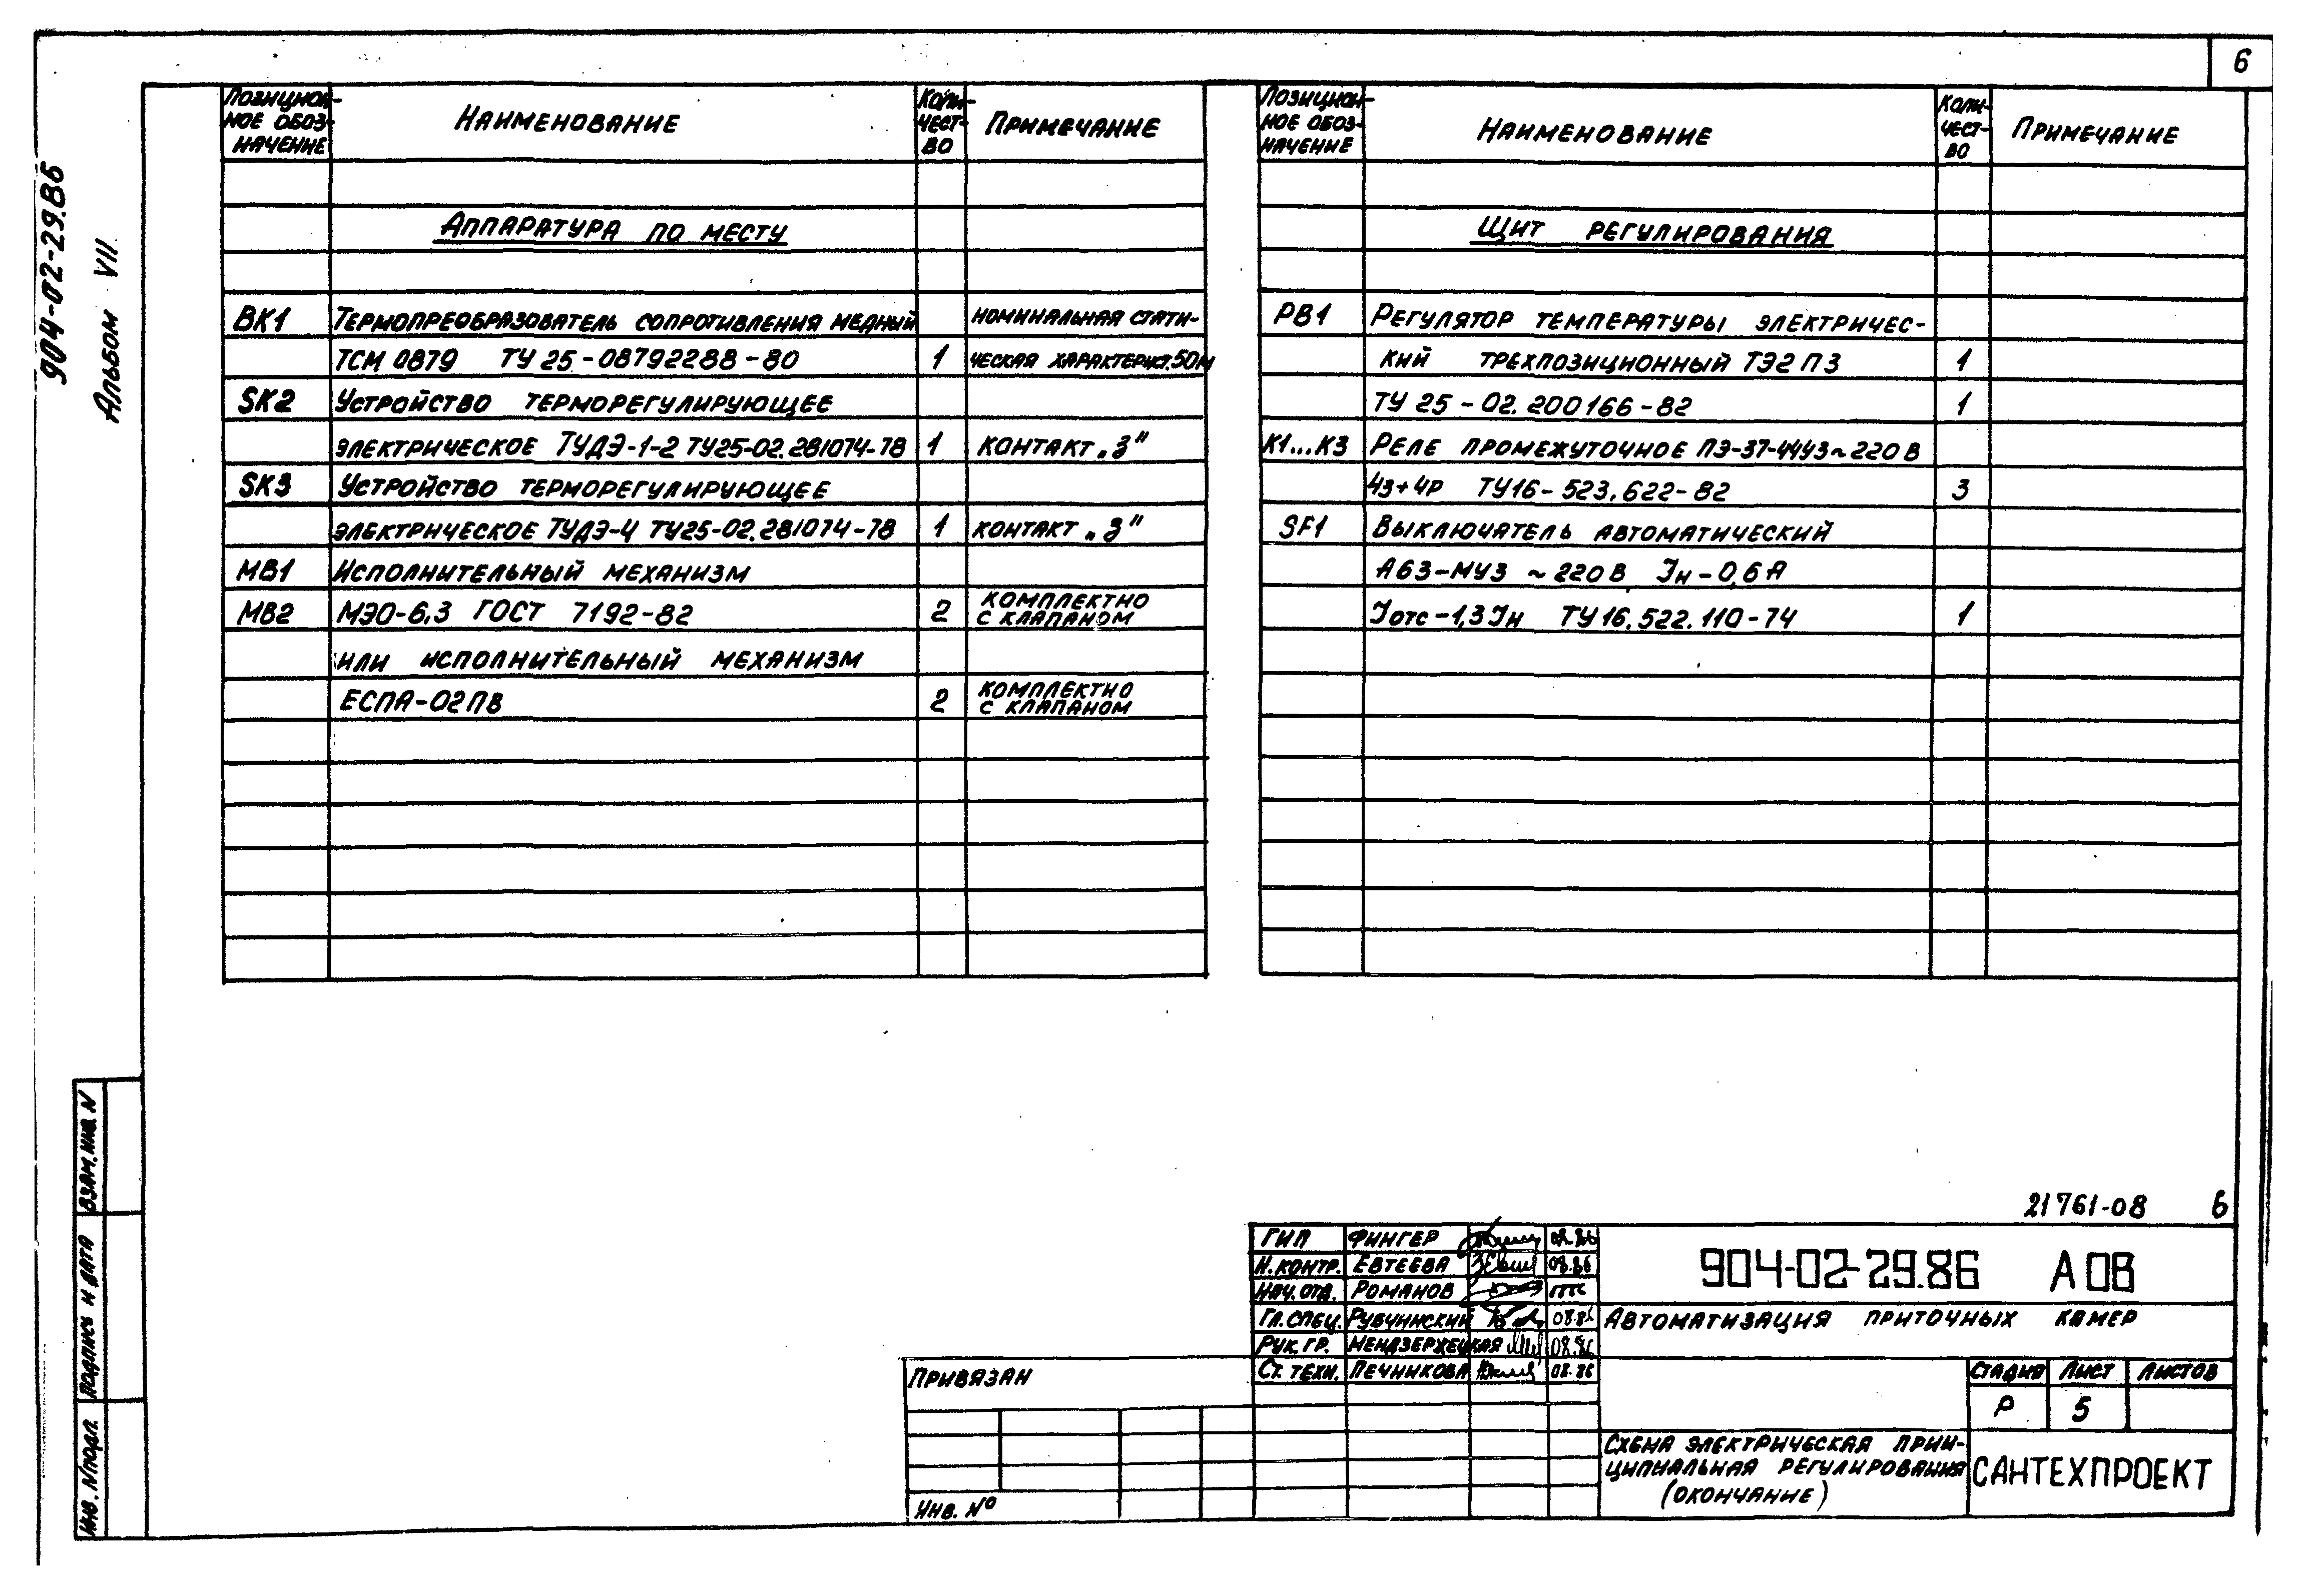 6
904-02-29.86
Альбом VII
Позицион-
ное обоз-
начение
Наименование
Коли-
чест-
во
Примечание
Аппаратура по месту
ВК1 Термопреобразователь сопротивления медный номинальная стати-
ТСМ 0879 ТУ 25-08792288-80 1 ческая характерист. 50м
SK2 Устройство терморегулирующее
электрическое ТУДЭ-1-2 ТУ25-02.281074-78 1 контакт „З"
SK3 Устройство терморегулирующее
электрическое ТУДЭ-4 ТУ25-02.281074-78 1 контакт „З"
МВ1 Исполнительный механизм
МВ2 МЭО-6,3 ГОСТ 7192-82 2 комплектно
с клапаном
или исполнительный механизм
ЕСПА-02ПВ 2 комплектно
с клапаном
Позицион-
ное обоз-
начение
Наименование
Коли-
чест-
во
Примечание
Щит регулирования
РВ1 Регулятор температуры электричес-
кий трехпозиционный ТЭ2П3 1
ТУ 25-02.200166-82 1
К1...К3 Реле промежуточное ПЭ-37-44У3 ~220В
4з+4р ТУ16-523.622-82 3
SF1 Выключатель автоматический
А63-МУ3 ~220В Iн-0,6А
Iотс-1,3Iн ТУ16.522.110-74 1
21761-08 6
Взам. инв. N
Подпись и дата
Инв. N подл.
ГИП Фингер
Н. контр. Евтеева 08.86
Нач. отд. Романов
Гл. спец. Рубчинский 08.86
Рук. гр. Мендзержецкая 08.86
Ст. техн. Печникова 08.86
904-02-29.86 А 08
Автоматизация приточных камер
Привязан
Инв. №
Стадия Лист Листов
Р 5
Схема электрическая прин-
ципиальная регулирования
(окончание)
САНТЕХПРОЕКТ